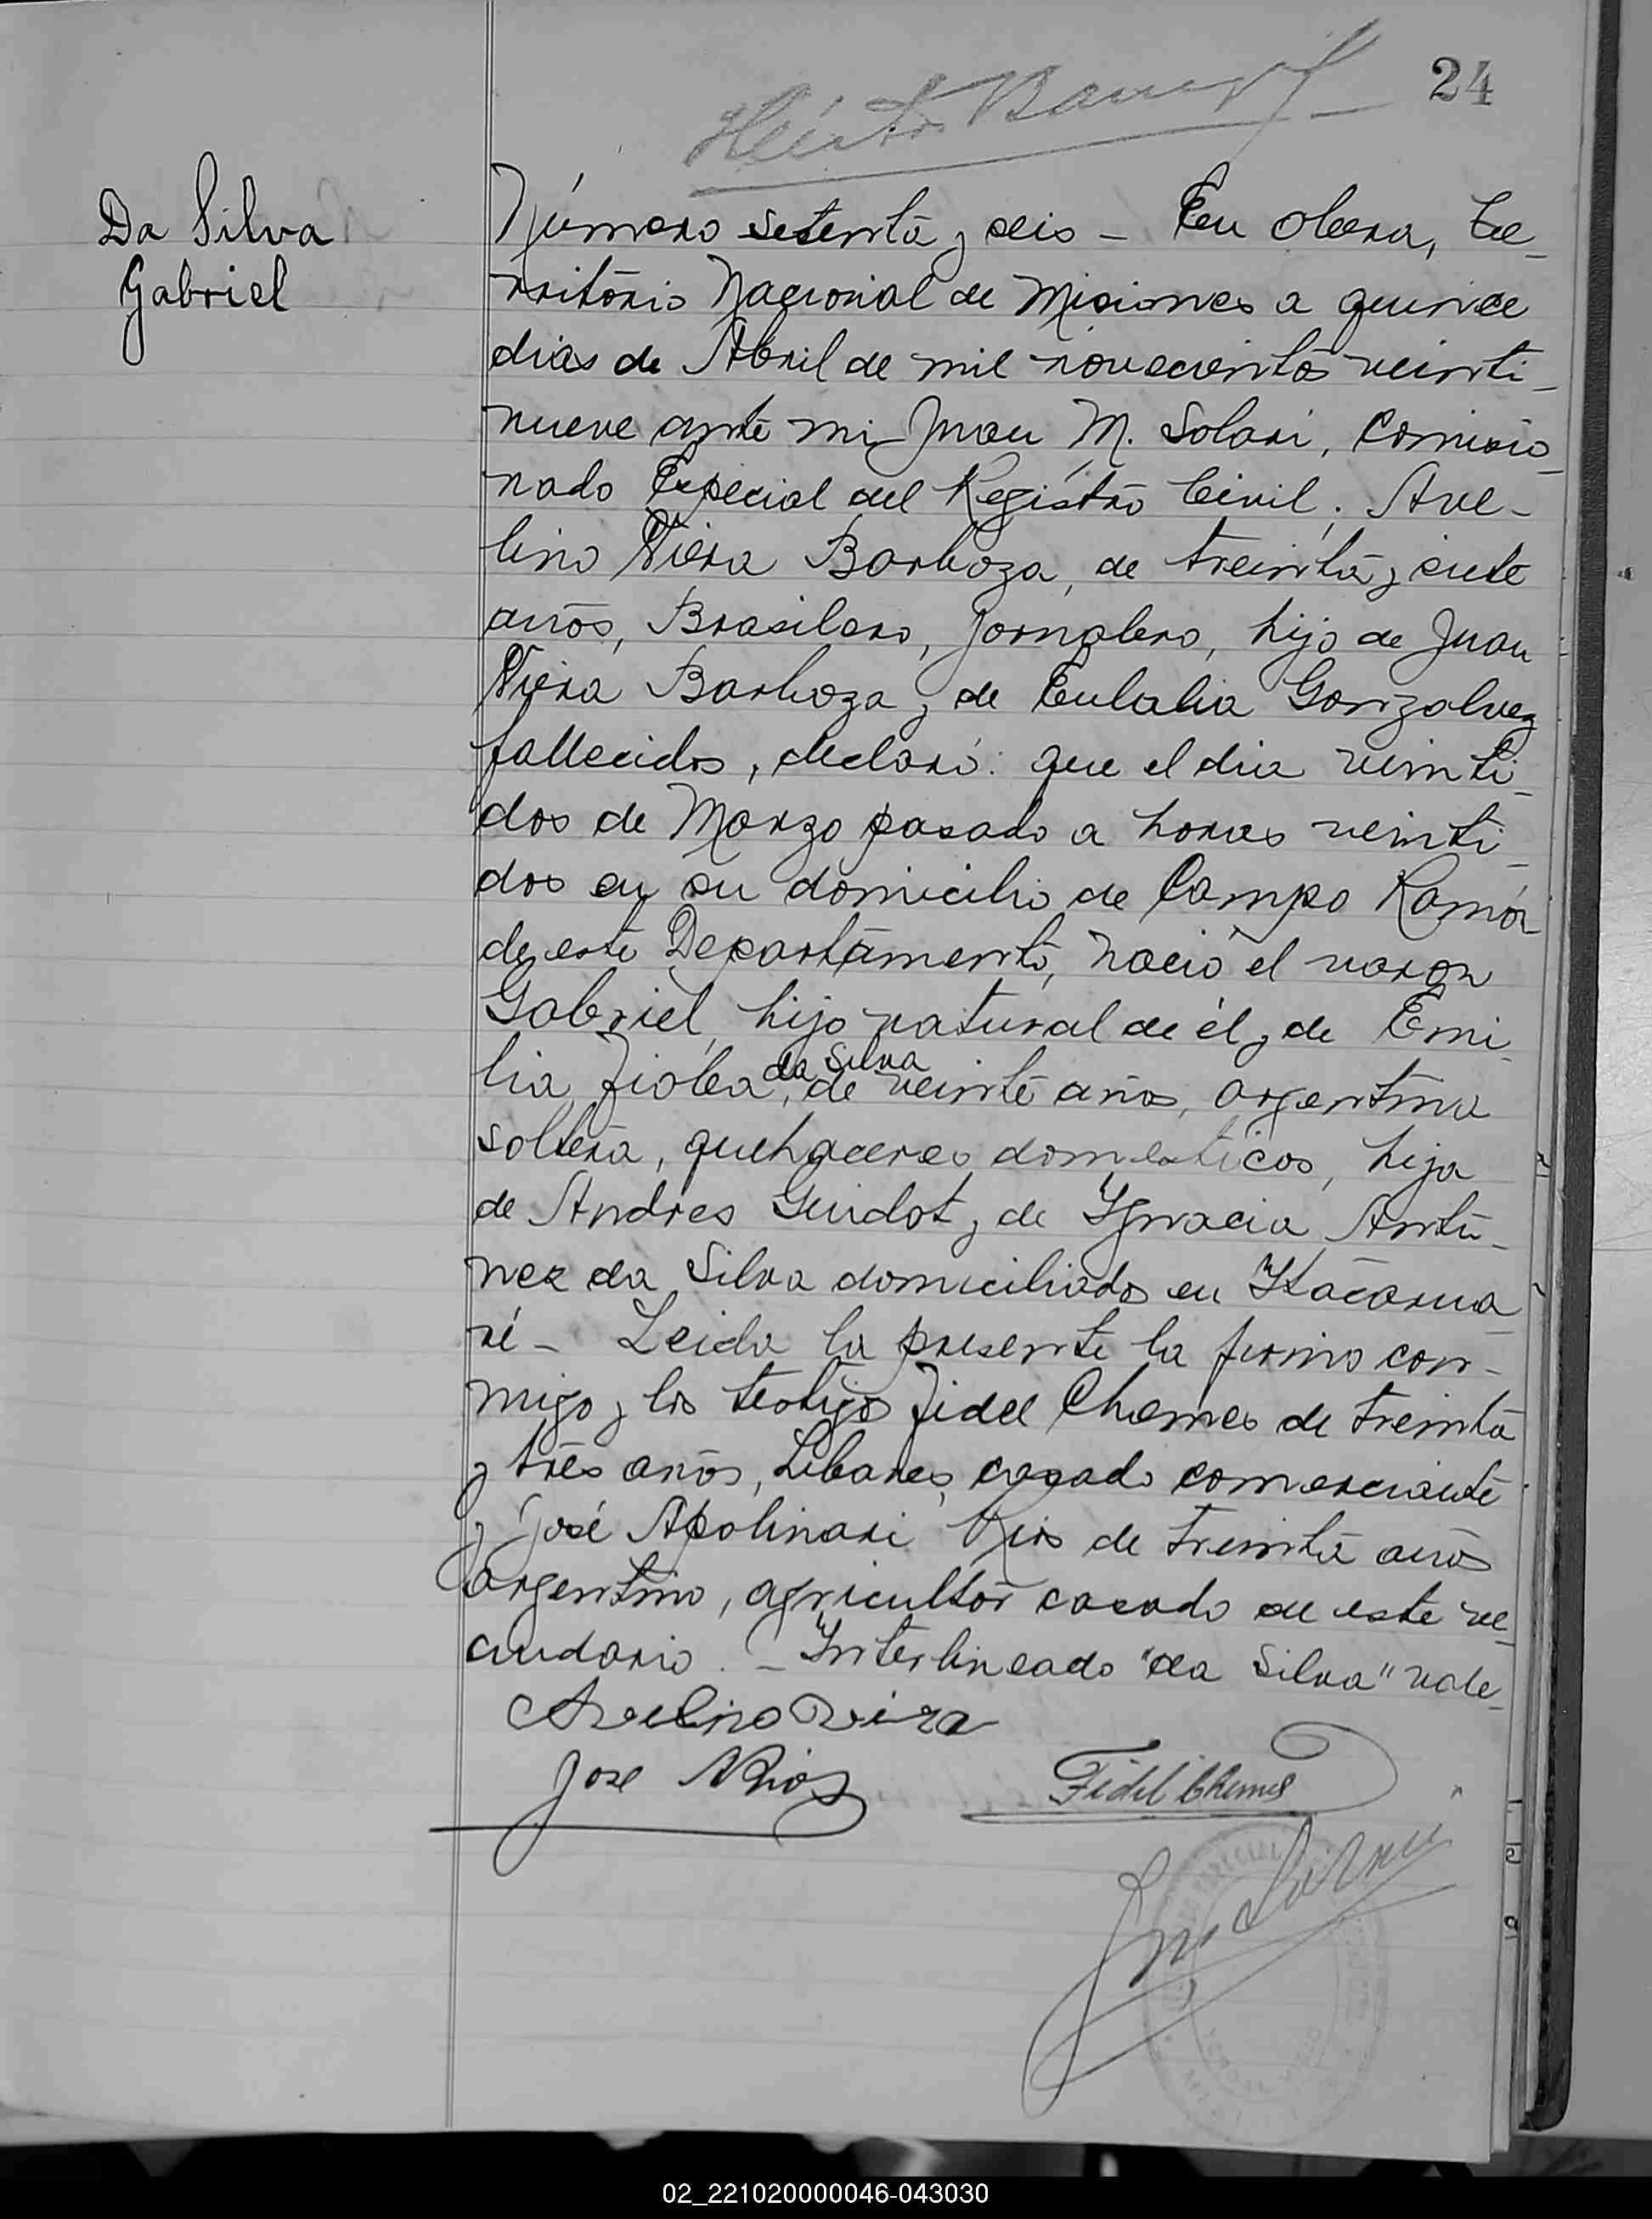 24
Da Silva
Gabriel
Número setenta y seis – En Obera, Te-
rritorio Nacional de Misiones a quince
dias de Abril de mil novecientos veinti-
nueve ante mi Juan M. Solari, Comisio-
nado Especial del Registro Civil; Ave-
lino Viera Barboza, de treinta y siete
años, Brasilero, jornalero, hijo de Juan
Viera Barboza y de Eulalia Gonzalvez
fallecidos, declaró: que el dia veinti-
dos de Marzo pasado a horas veinti-
dos en su domicilio de Campo Ramón
de este Departamento, nació el varon
Gabriel, hijo natural de él y de Emi-
lia da Silva, de veinte años, argentina
soltera, quehaceres domesticos, hija
de Andres Guidot y de Ygnacia Antu-
nez da Silva domiciliados en Itacarua-
ré – Leida la presente la firmo con-
migo y los testigos Fidel Chemes de treinta
y tres años, Libanes, casado comerciante
y José Apolinari Rios de treinta años
argentino, agricultor casado de este ve-
cindario. – Interlineado "da Silva" vale
Avelino Viera
Jose A Rios
Fidel Chemes
02_221020000046-043030